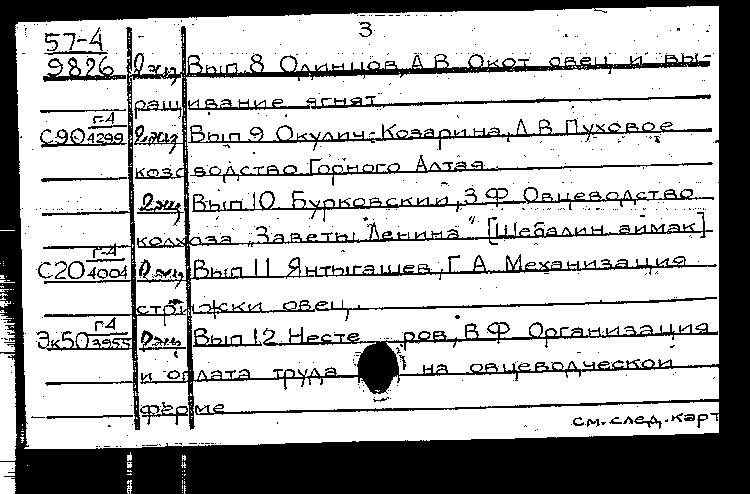 3
57-4
9826 Вып. 8 Одинцов, А.В. Окот овец и вы-
ращивание ягнят
С90 г-4/4299 Вып. 9 Окулич-Козарина, Л.В. Пуховое
козоводство Горного Алтая
Вып. 10 Бурковский, З.Ф. Овцеводство
колхоза „Заветы Ленина" [Шебалин. аймак]
С20 г-4/4004 Вып. 11 Янтыгашев, Г.А. Механизация
стрижки овец.
Эк50 г-4/3955 Вып. 12 Несте ров, В.Ф. Организация
и оплата труда на овцеводческой
ферме
см. след. карт